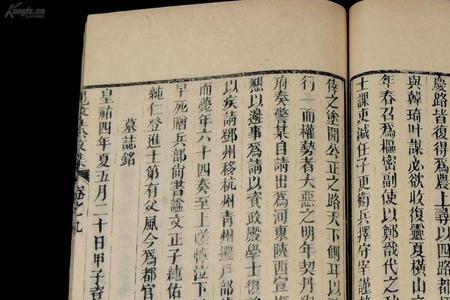 慶路皆復得為農上尋以四路
與韓琦叶謀必欲收復靈夏橫山
年春召為樞密副使以鄭戩代
士課減任子更衛兵擇守宰謹
倖之途開公正之路天下側耳以
行一而權勢者大惡之明年契丹
府奏警某自請出為河東陝西宣
懇以邊事為請以資政殿學士復
以疾請鄧州移杭州青州遷戶部
而薨年六十四奏至上嗟悼
早死贈兵部尚書諡文正子純佑
純仁登進士第有父風今為都官
墓誌銘
皇祐四年夏五月二十日甲子資
卷之九
Kongfz.cn